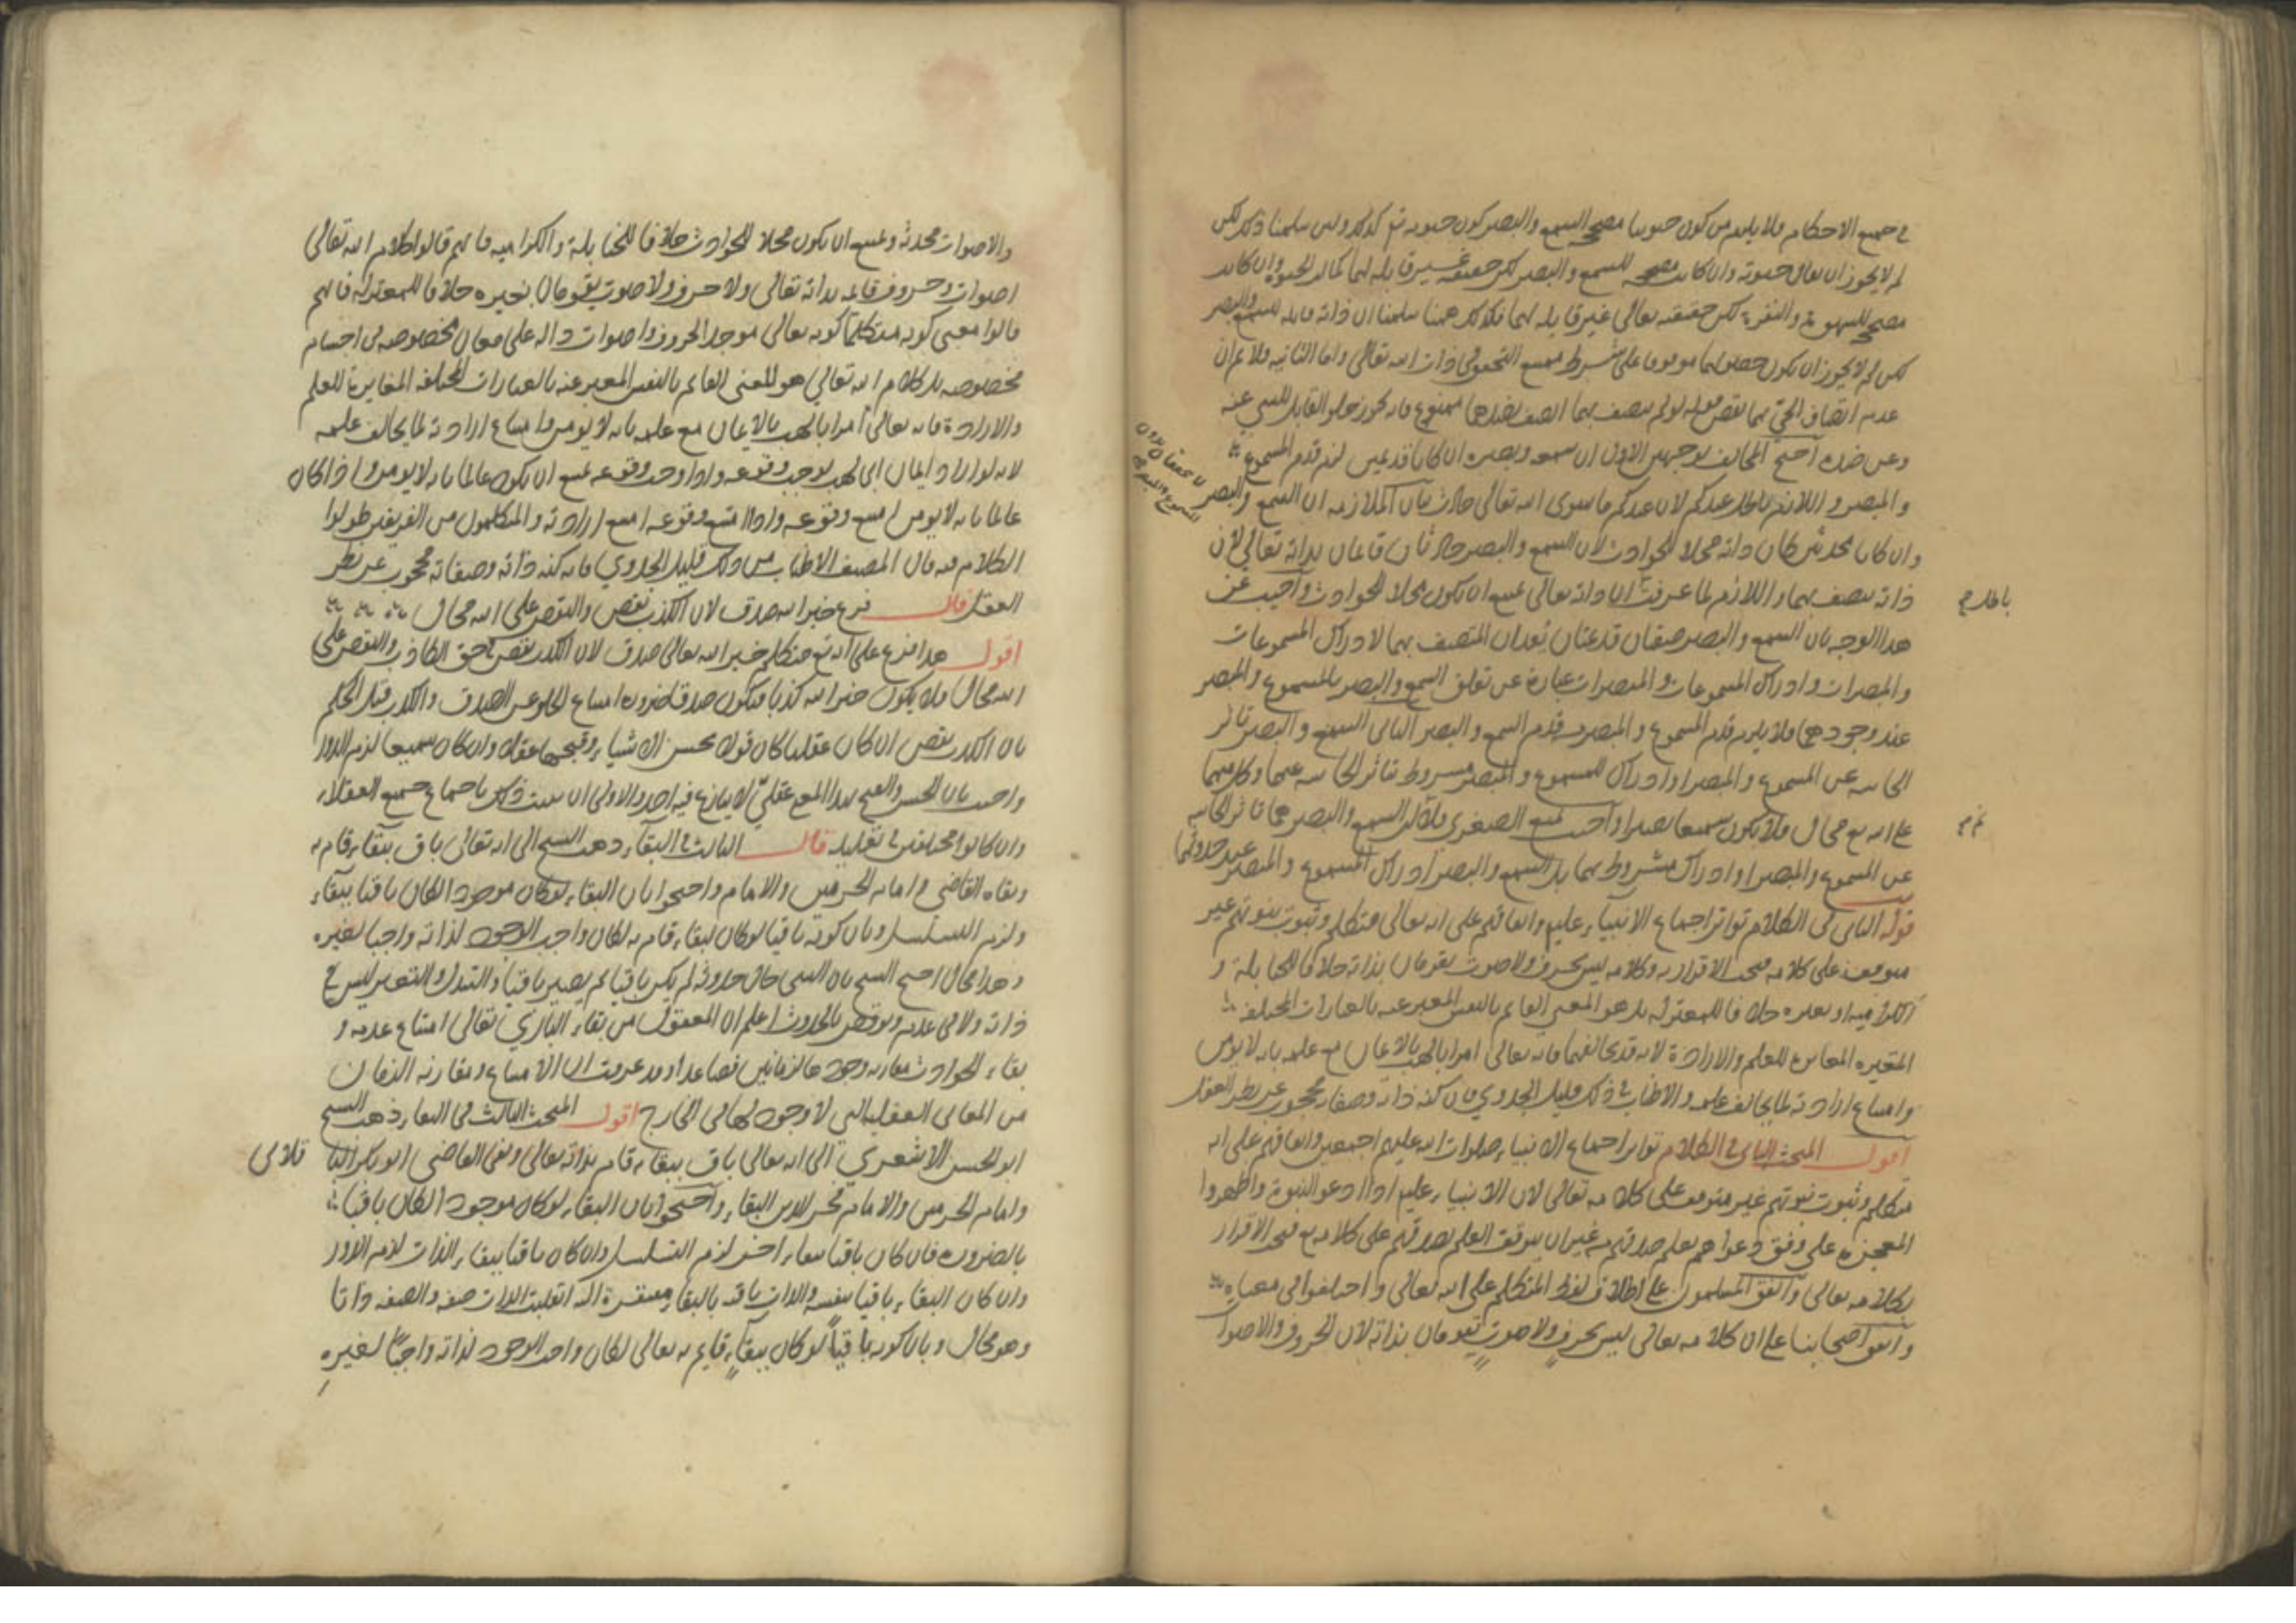 في جميع الاحكام ولا يلزم من كون حيوتنا مصحح السمع والبصر كون حيوته تع كذلك ولئن سلمنا ذلك لكن
لم لا يجوز ان يقال حيوته وان كانت مصححه للسمع والبصر لكن حقيقته غير قابلة لهما كما ان الحيوة وان كانت
مصححة للشهوة والنفرة لكن حقيقته تعالى غير قابلة لهما فكذلك ههنا سلمنا ان ذاته قابلة للسمع والبصر
لكن لم لا يجوز ان يكون حصولهما موقوفا على شرط ممتنع التحقق في ذات الله تعالى واما الثانية فلا نم ان
عدم اتصاف الحي بهما نقص قوله لو لم يتصف بهما اتصف بضدهما ممنوع فانه يجوز خلو القابل للشي عنه
وعن ضده احتج المخالف بوجهين الاول ان سمعه وبصره ان كانا قديمين لزم قدم المسموع
والمبصر واللازم باطل عندكم لان عندكم ما سوى الله تعالى حادث بيان الملازمة ان السمع والبصر
وان كانا محدثين كان ذاته محلا للحوادث لان السمع والبصر حادثان قائمان بذاته تعالى لان
ذاته يتصف بهما واللازم لما عرفت ان ذاته تعالى يمتنع ان يكون محلا للحوادث واجيب عن
باطل
هذا الوجه بان السمع والبصر صفتان قديمتان يعدان المتصف بهما لادراك المسموعات
والمبصرات وادراك المسموعات والمبصرات عبارة عن تعلق السمع والبصر بالمسموع والمبصر
عند وجودهما فلا يلزم قدم المسموع والمبصر من قدم السمع والبصر الثاني السمع والبصر تاثر
الحاسة عن المسموع والمبصر او ادراك للمسموع والمبصر مشروط بتاثر الحاسة عنهما وكل منهما
على الله تع محال فلا يكون سميعا بصيرا واجيب بمنع الصغرى فلا نم ان السمع والبصر هما تاثر الحاسة
عن المسموع والمبصر او ادراك مشروط بهما بل السمع والبصر ادراك المسموع والمبصر عند حدوثهما
قوله الثاني في الكلام تواتر اجماع الانبياء عليهم واتفاقهم على انه تعالى متكلم وثبوت نبوتهم غير
متوقف على كلامه فيجب الاقرار به وكلامه ليس بحرف ولا صوت يقومان بذاته خلافا للحنابلة و
الكرامية او بغيره خلافا للمعتزلة بل هو المعنى القائم بالنفس المعبر عنه بالعبارات المختلفة
المتغيرة المغاير للعلم والارادة لانه قد يخالفهما فانه تعالى امر ابا لهب بالايمان مع علمه بانه لا يومن
وامتناع ارادته لما يخالف علمه والاطناب في ذلك قليل الجدوي فان كنه ذاته وصفاته محجوب عن نظر العقل
اقول المبحث الثاني في الكلام تواتر اجماع الانبياء صلوات الله عليهم اجمعين واتفاقهم على انه
متكلم وثبوت نبوتهم غير متوقف على كلامه تعالى لان الانبياء عليهم اذا ادعوا النبوة واظهروا
المعجزة على وفق دعواهم يعلم صدقهم من غير ان يتوقف العلم بصدقهم على كلامه تع فيجب الاقرار
بكلامه تعالى واتفق المسلمون على اطلاق لفظ المتكلم على الله تعالى واختلفوا في معناه
واتفق اصحابنا على ان كلامه تعالى ليس بحرف ولا صوت يقومان بذاته لان الحروف والاصوات
والاصوات محدثة ويمتنع ان يكون محلا للحوادث خلافا للحنابلة والكرامية فانهم قالوا كلام الله تعالى
اصوات وحروف قائمة بذاته تعالى ولا حرف ولا صوت يقومان بغيره خلافا للمعتزلة فانهم
قالوا معنى كونه متكلما كونه تعالى موجد الحروف واصوات دالة على معان مخصوصة في اجسام
مخصوصة بل كلام الله تعالى هو المعنى القائم بالنفس المعبر عنه بالعبارات المختلفة المغايرة للعلم
والارادة فانه تعالى امر ابا لهب بالايمان مع علمه بانه لا يومن وامتناع ارادته لما يخالف علمه
لانه لو اراد ايمان ابي لهب لوجب وقوعه واذا وجب وقوعه يمتنع ان يكون عالما بانه لا يومن واذا كان
عالما بانه لا يومن امتنع وقوعه واذا امتنع وقوعه امتنع ارادته والمتكلمون من الفريقين طولوا
الكلام فيه قال المصنف الاطناب في ذلك قليل الجدوي فانه كنه ذاته وصفاته محجوب عن نظر
العقل قال فرع خبر الله صدق لان الكذب نقص والنقص على الله محال
اقول هذا فرع على انه تع متكلم خبر الله تعالى صدق لان الكذب نقص في حق الكاذب والنقص على
الله محال فلا يكون خبر الله كذبا فيكون صدقا ضرورة امتناع الخلو عن الصدق والكذب قيل الحكم
بان الكذب نقص ان كان عقليا كان قولا بحسن الاشياء وقبحها عقلا وان كان سمعيا لزم الدور
واجيب بان الحسن والقبح بهذا المعنى عقلي لا ينازع فيه احد والاولى ان يثبت ذلك باجماع جميع العقلاء
وان كانوا مختلفين في تعليله قال الثالث في البقاء ذهب الشيخ الى انه تعالى باق ببقاء قام به
ونفاه القاضي وامام الحرمين والامام واحتجوا بان البقاء لو كان موجودا لكان باقيا ببقاء
ولزم التسلسل وبان كونه باقيا لو كان لبقاء قام به لكان واجب الوجود لذاته واجبا لغيره
وهذا محال احتج الشيخ بان الشي حال حدوثه لم يكن باقيا ثم يصير باقيا والتبدل والتغير ليس في
ذاته ولا في عدمه ونوقض بالحدوث اعلم ان المعقول من بقاء الباري تعالى امتناع عدمه و
بقاء الحوادث مقارنة وجودها لزمانين فصاعدا وقد عرفت ان الامتناع ومقارنة الزمان
من المعاني العقلية التي لا وجود لها في الخارج اقول المبحث الثالث في البقاء ذهب الشيخ
ابو الحسن الاشعري الى انه تعالى باق ببقاء قام بذاته تعالى ونفى القاضي ابو بكر الباقلاني
وامام الحرمين والامام فخر الدين البقاء واحتجوا بان البقاء لو كان موجودا لكان باقيا
بالضرورة فان كان باقيا ببقاء اخر لزم التسلسل وان كان باقيا ببقاء الذات لزم الدور
وان كان البقاء باقيا بنفسه والذات باقية بالبقاء مفتقرة اليه انقلبت الذات صفة والصفة ذاتا
وهو محال وبان كونه باقيا لو كان ببقاء قايم به تعالى لكان واجب الوجود لذاته واجبا لغيره